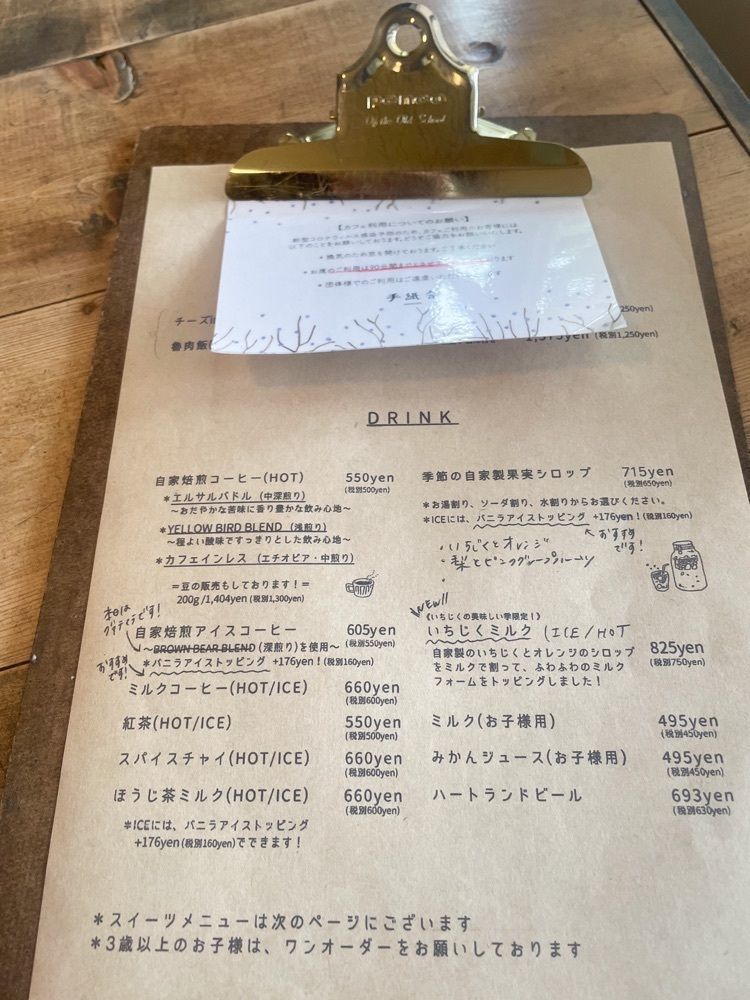 penco
Of the Old School
【カフェ利用についてのお願い】
新型コロナウィルス感染予防のため、カフェご利用のお客様には、
以下のことをお願いしております。どうぞご協力をお願いいたします。
・換気のため窓を開けております。ご了承ください
・お席のご利用は90分間まで
・団体様でのご利用はご遠慮いただ
手紙舎
チーズ
250yen)
魯肉飯
(税別1,250yen)
DRINK
自家焙煎コーヒー(HOT) 550yen
(税別500yen)
*エルサルバドル (中深煎り)
〜おだやかな苦味に香り豊かな飲み心地〜
*YELLOW BIRD BLEND (浅煎り)
〜程よい酸味ですっきりとした飲み心地〜
*カフェインレス (エチオピア・中煎り)
=豆の販売もしております!=
200g /1,404yen (税別1,300yen)
本日は
グアテマラです!
自家焙煎アイスコーヒー 605yen
(税別550yen)
〜BROWN BEAR BLEND (深煎り)を使用〜
おすすめ
です!
*バニラアイストッピング +176yen!(税別160yen)
ミルクコーヒー(HOT/ICE) 660yen
(税別600yen)
紅茶(HOT/ICE) 550yen
(税別500yen)
スパイスチャイ(HOT/ICE) 660yen
(税別600yen)
ほうじ茶ミルク(HOT/ICE) 660yen
(税別600yen)
*ICEには、バニラアイストッピング
+176yen (税別160yen)でできます!
季節の自家製果実シロップ 715yen
(税別650yen)
*お湯割り、ソーダ割り、水割りからお選びください。
*ICEには、バニラアイストッピング +176yen!(税別160yen)
おすすめ
です!
・いちじくとオレンジ
・梨とピンクグレープフルーツ
NEW!!
《いちじくの美味しい季限定!》
いちじくミルク (ICE/HOT
825yen
(税別750yen)
自家製のいちじくとオレンジのシロップ
をミルクで割って、ふわふわのミルク
フォームをトッピングしました!
ミルク(お子様用) 495yen
(税別450yen)
みかんジュース(お子様用) 495yen
(税別450yen)
ハートランドビール 693yen
(税別630yen)
*スイーツメニューは次のページにございます
*3歳以上のお子様は、ワンオーダーをお願いしております